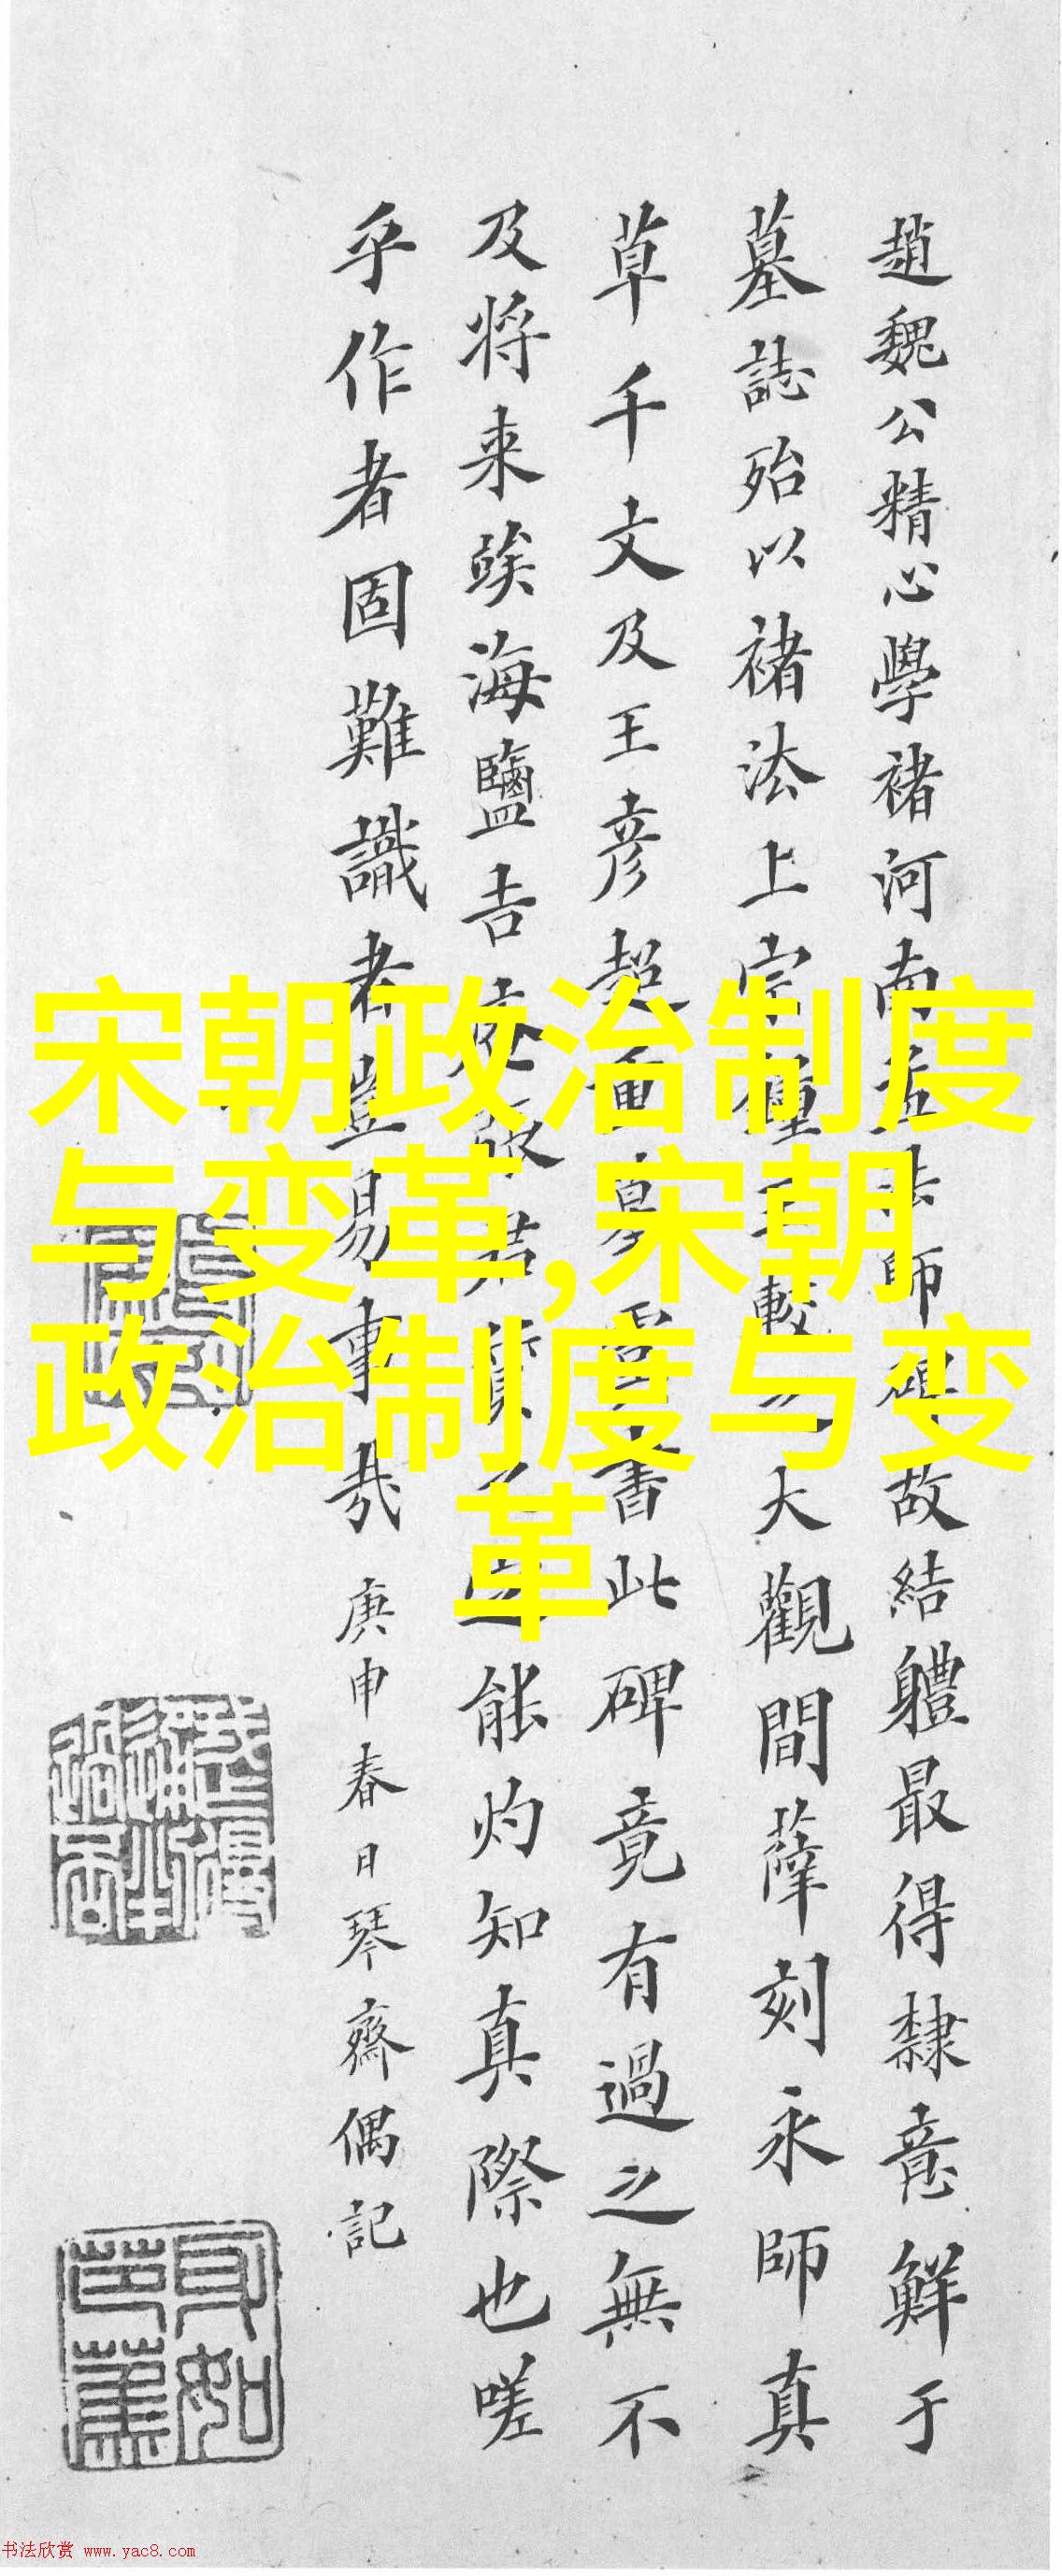 趙魏公精心學褚河南孟法師碑故結體最得隸意鮮于
墓誌殆以褚法上宗鍾王較之大觀間薛刻永師真
草千文及王彥超重摹虞書此碑竟有過之無不
及将来俟海鹽吉
能灼知真際也嗟
乎作者固難識者豈易事哉
庚申春日琴齋偶記
宋朝政治制度
与变革,宋朝
政治制度与变
革
书法欣赏 www.yac8.com